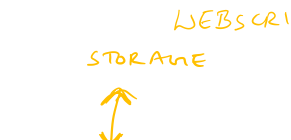 WEBSCRI
STORAGE